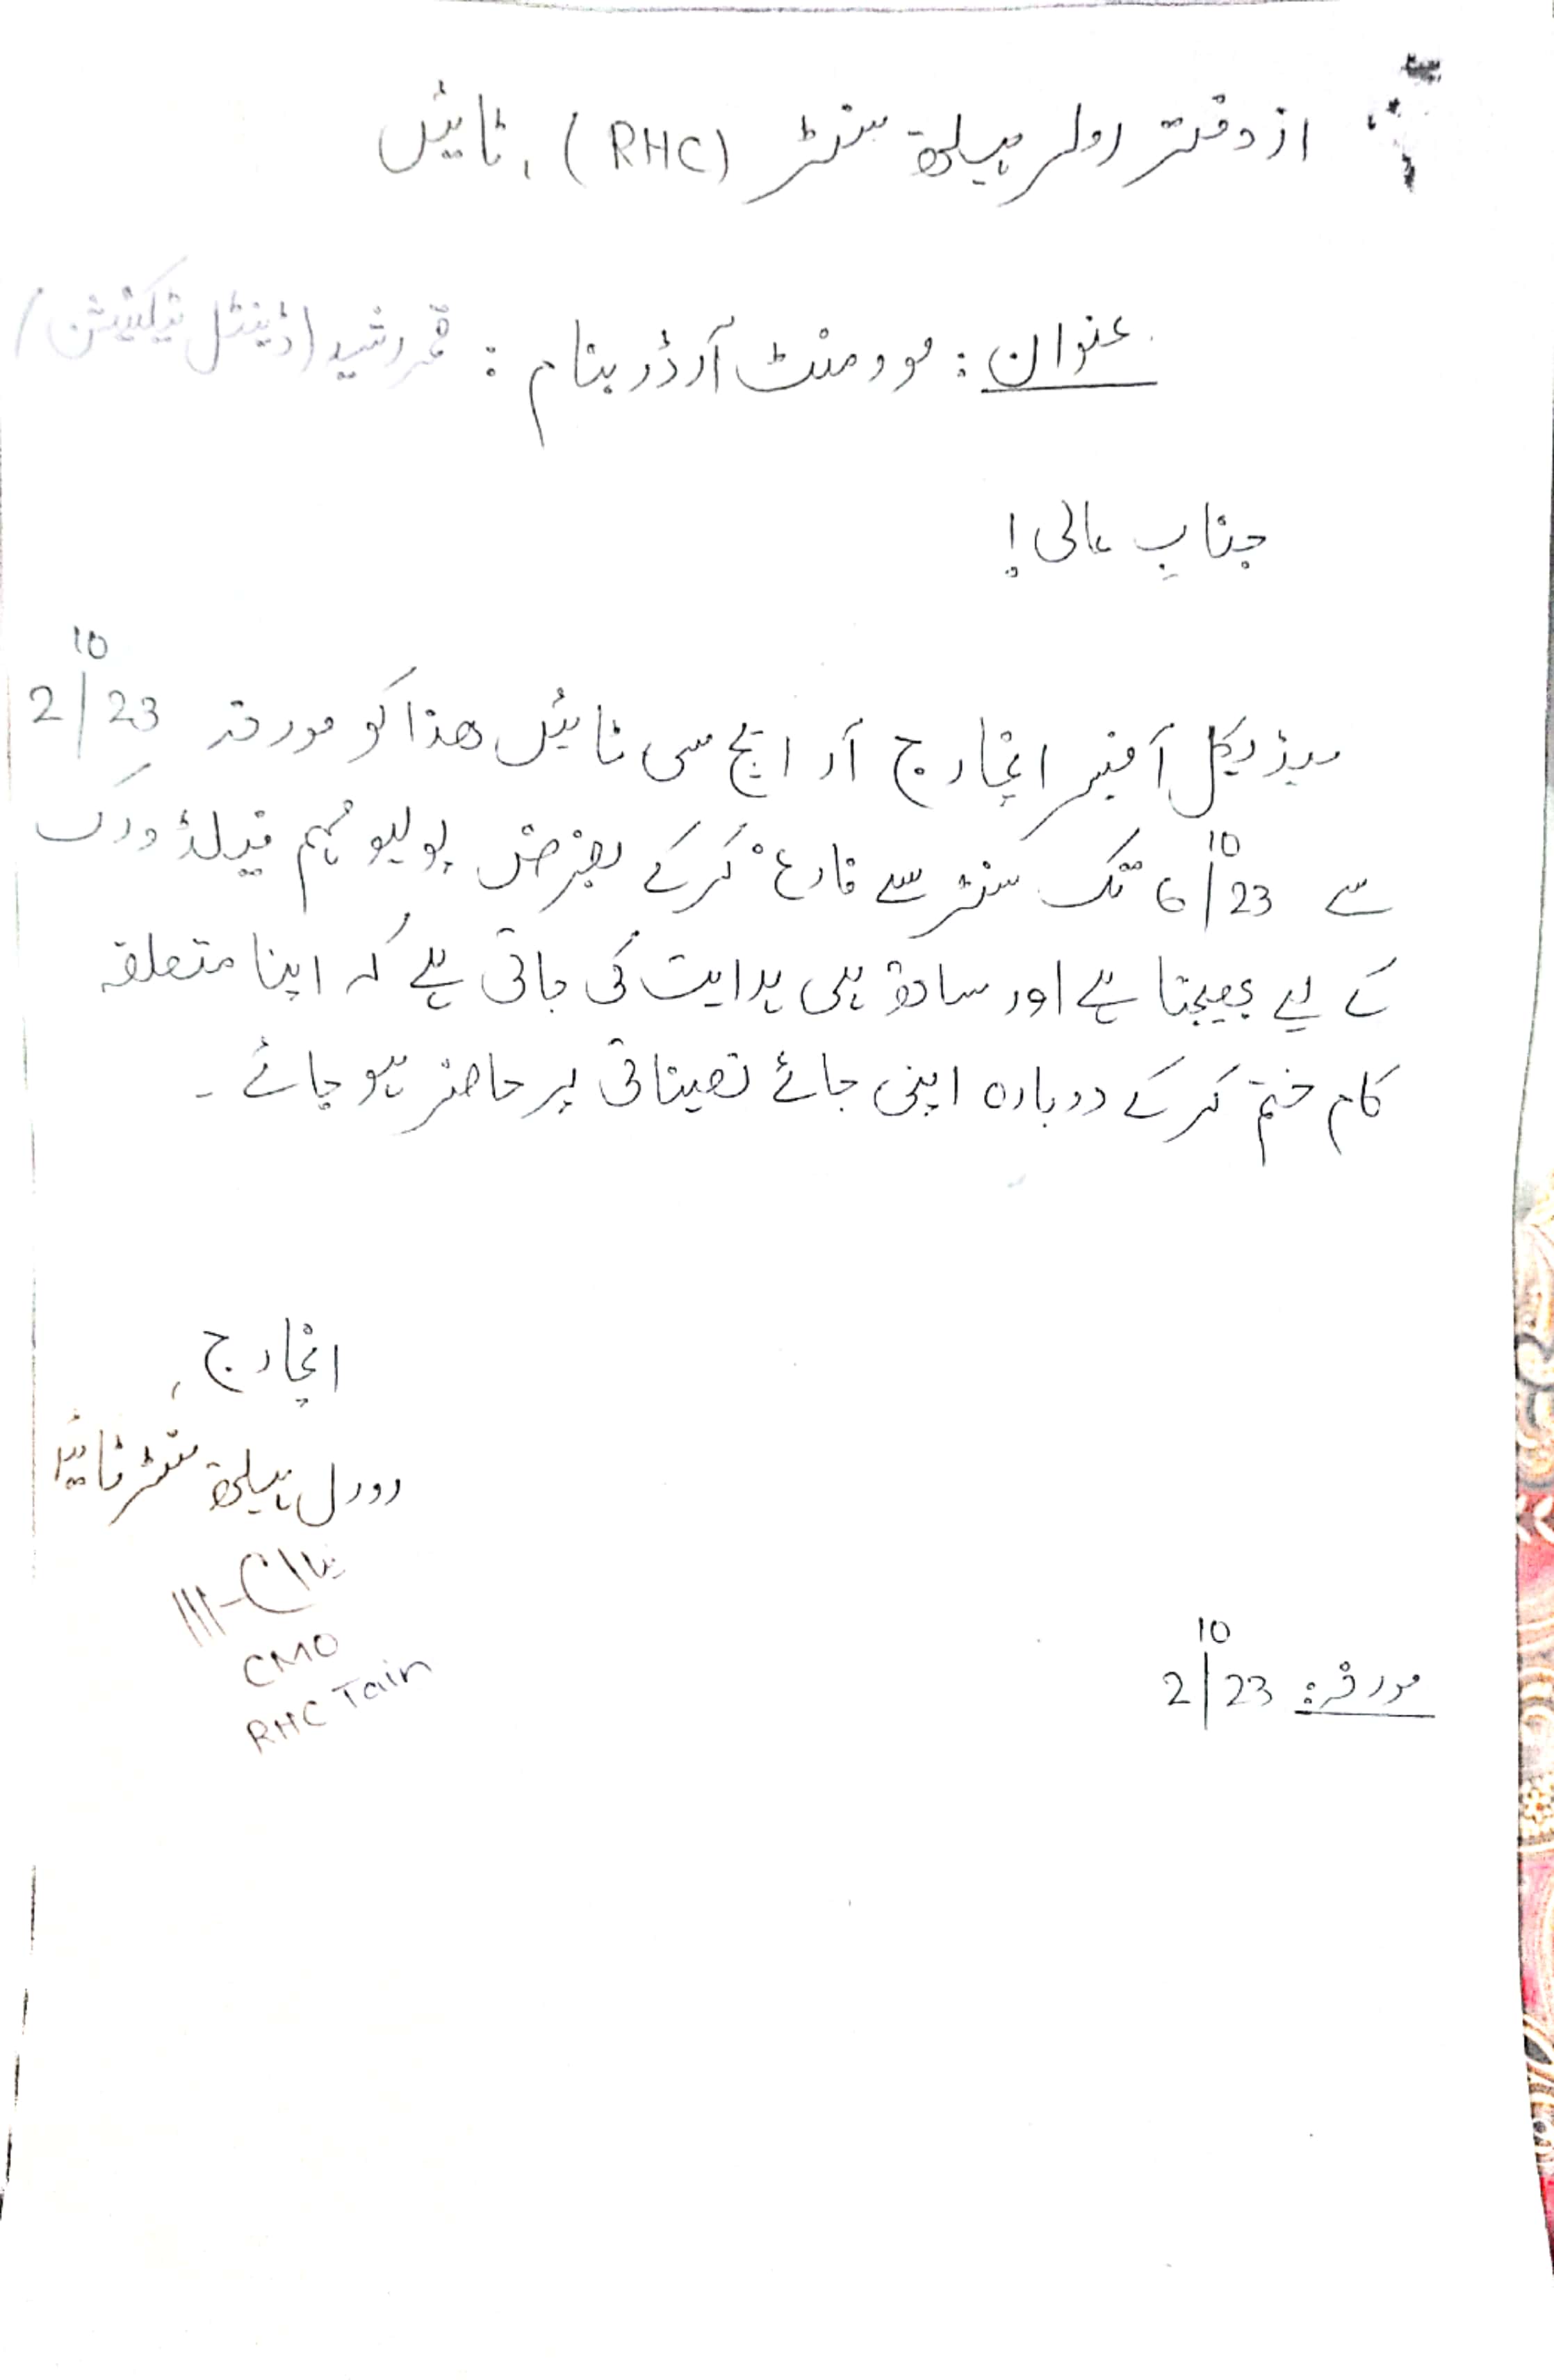 از دفتر رولر ہیلتھ سنٹر (RHC)، ٹائیں
عنوان: موومنٹ آرڈر بنام: قمر رشید (ڈینٹل ٹیکنیشن)
جنابِ عالی!
میڈیکل آفیسر انچارج آر ایچ سی ٹائیں ھذا کو مورخہ 2/10/23
سے 6/10/23 تک سنٹر سے فارغ کرکے بغرض پولیو مُہم فیلڈ ورک
کے لیے بھیجتا ہے اور ساتھ ہی ہدایت کی جاتی ہے کہ اپنا متعلقہ
کام ختم کرکے دوبارہ اپنی جائے تعیناتی پر حاضر ہو جائے۔
انچارج،
رورل ہیلتھ سنٹر ٹائیں
CMO
RHC Tain
مورخہ: 2/10/23